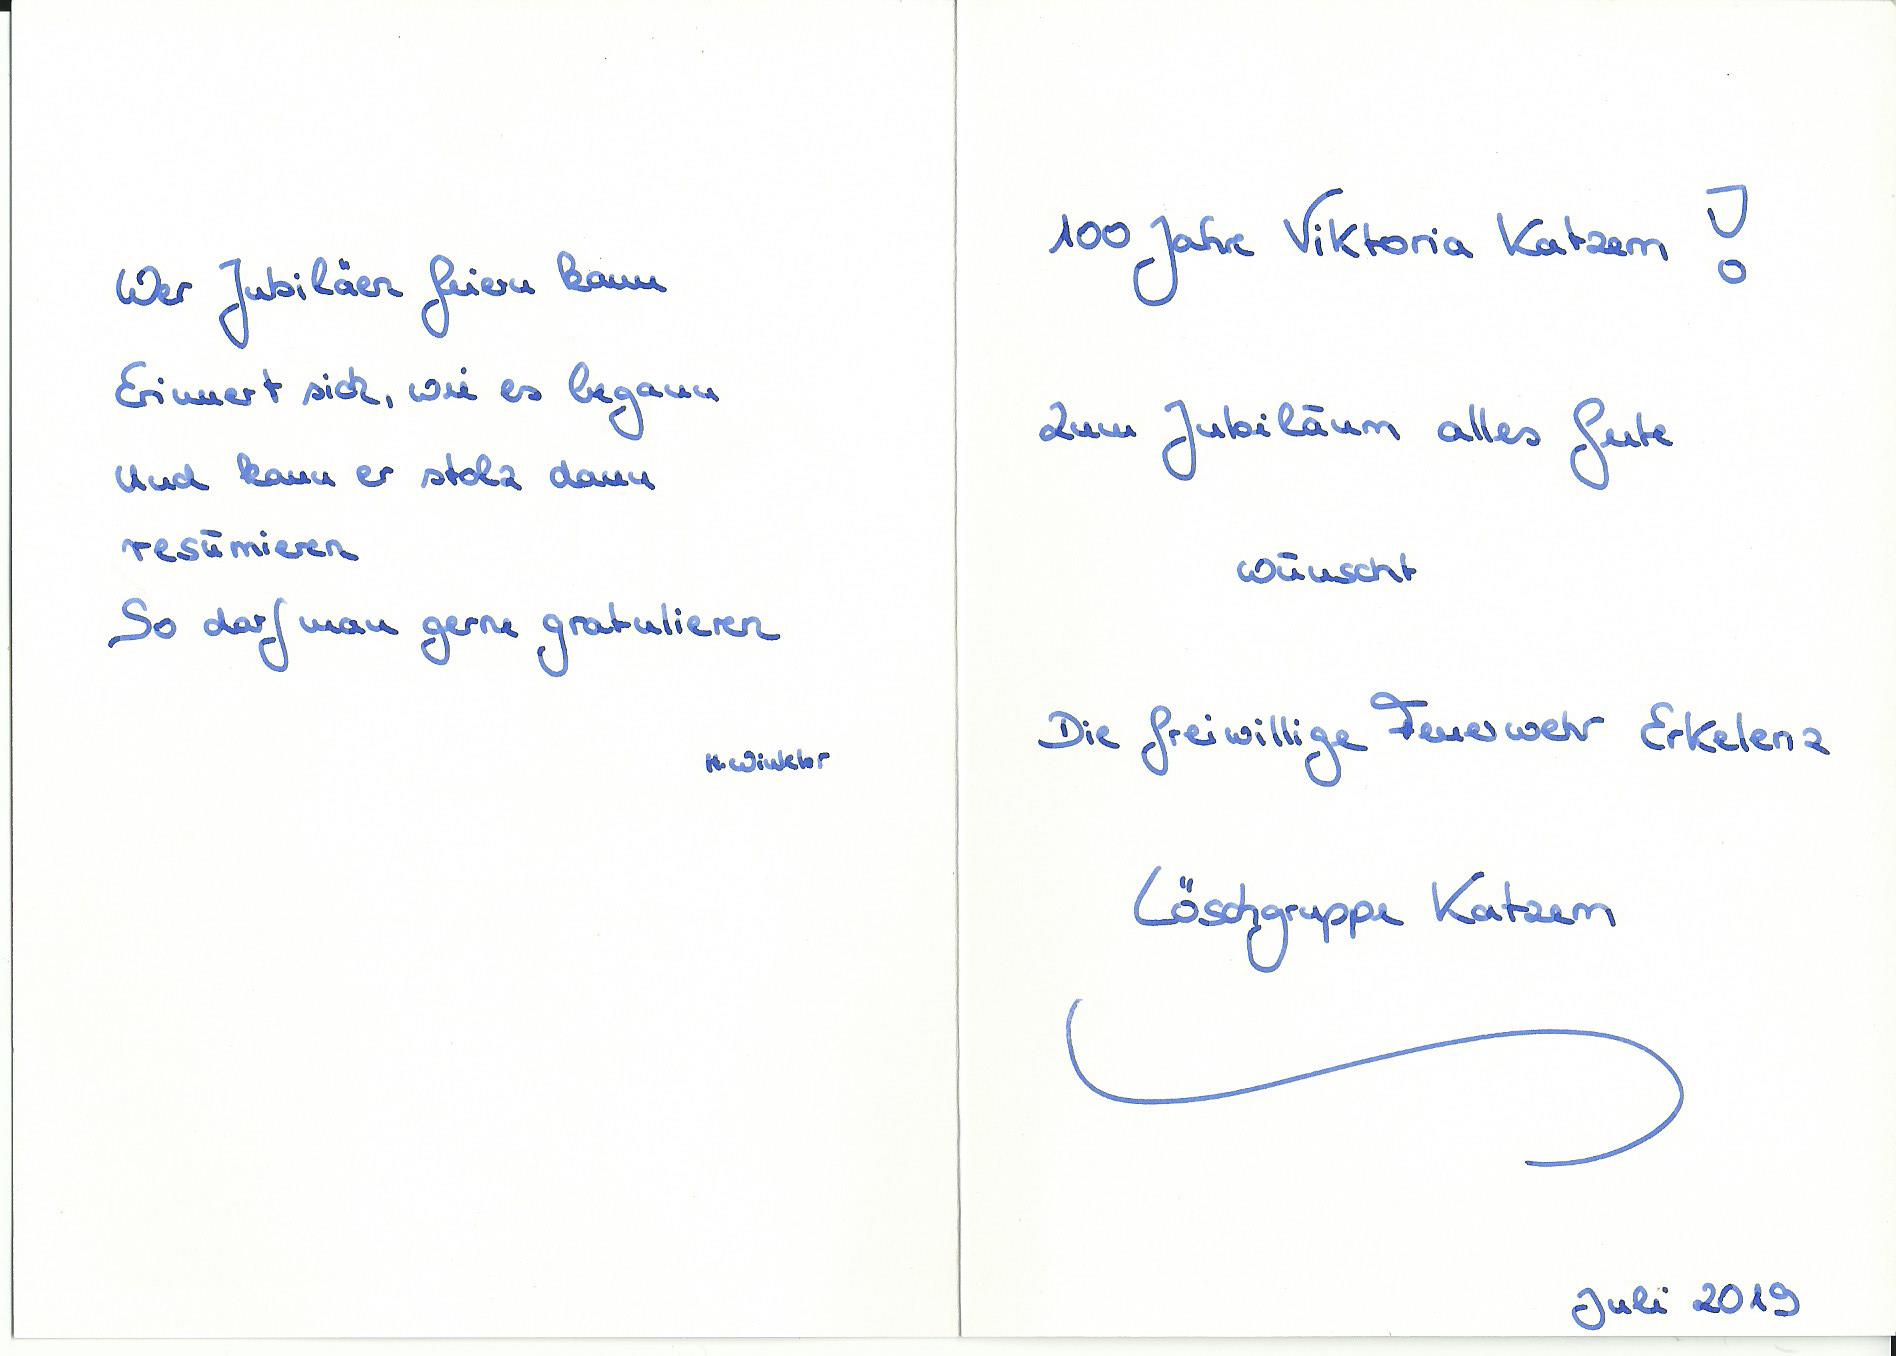 Wer Jubiläen feiern kann
Erinnert sich, wie es begann
Und kann er stolz dann
resümieren
So darf man gerne gratulieren
N. Winkler
100 Jahre Viktoria Katzem !
Zum Jubiläum alles Gute
wünscht
Die freiwillige Feuerwehr Erkelenz
Löschgruppe Katzem
Juli 2019